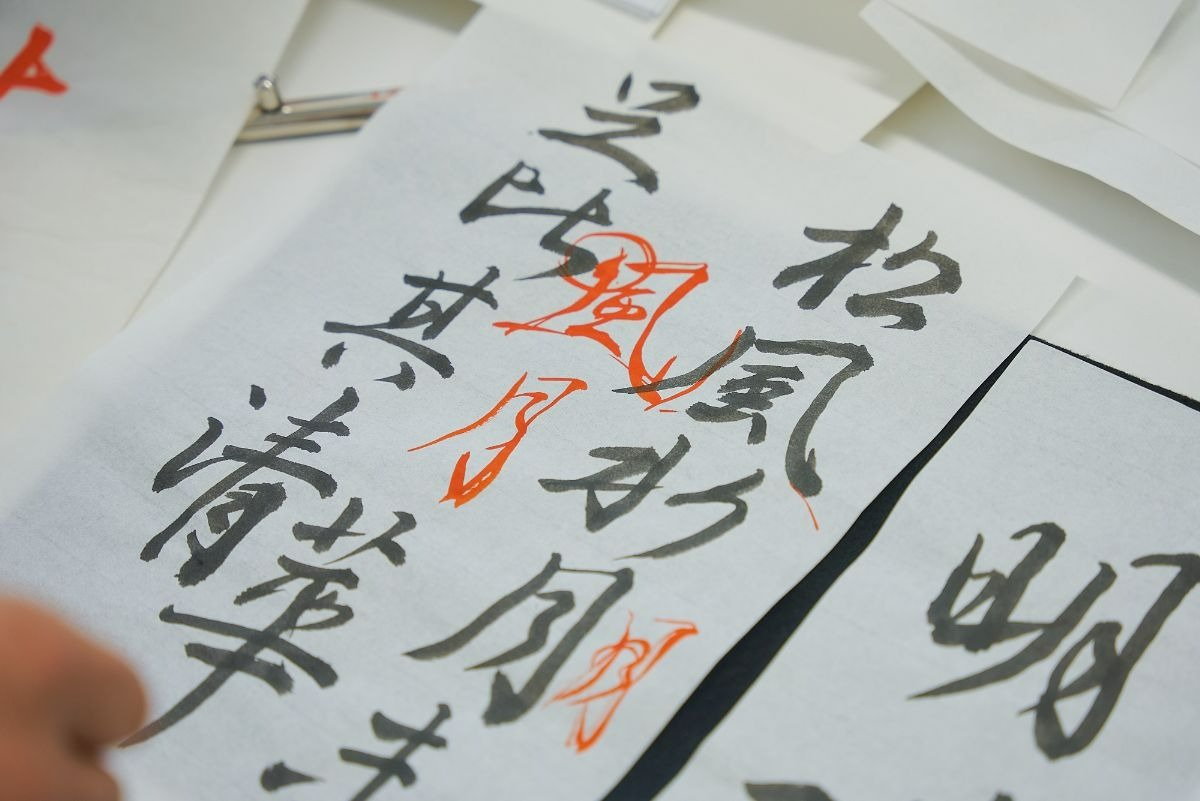 明
松風水月未
風月
月
足比其清華